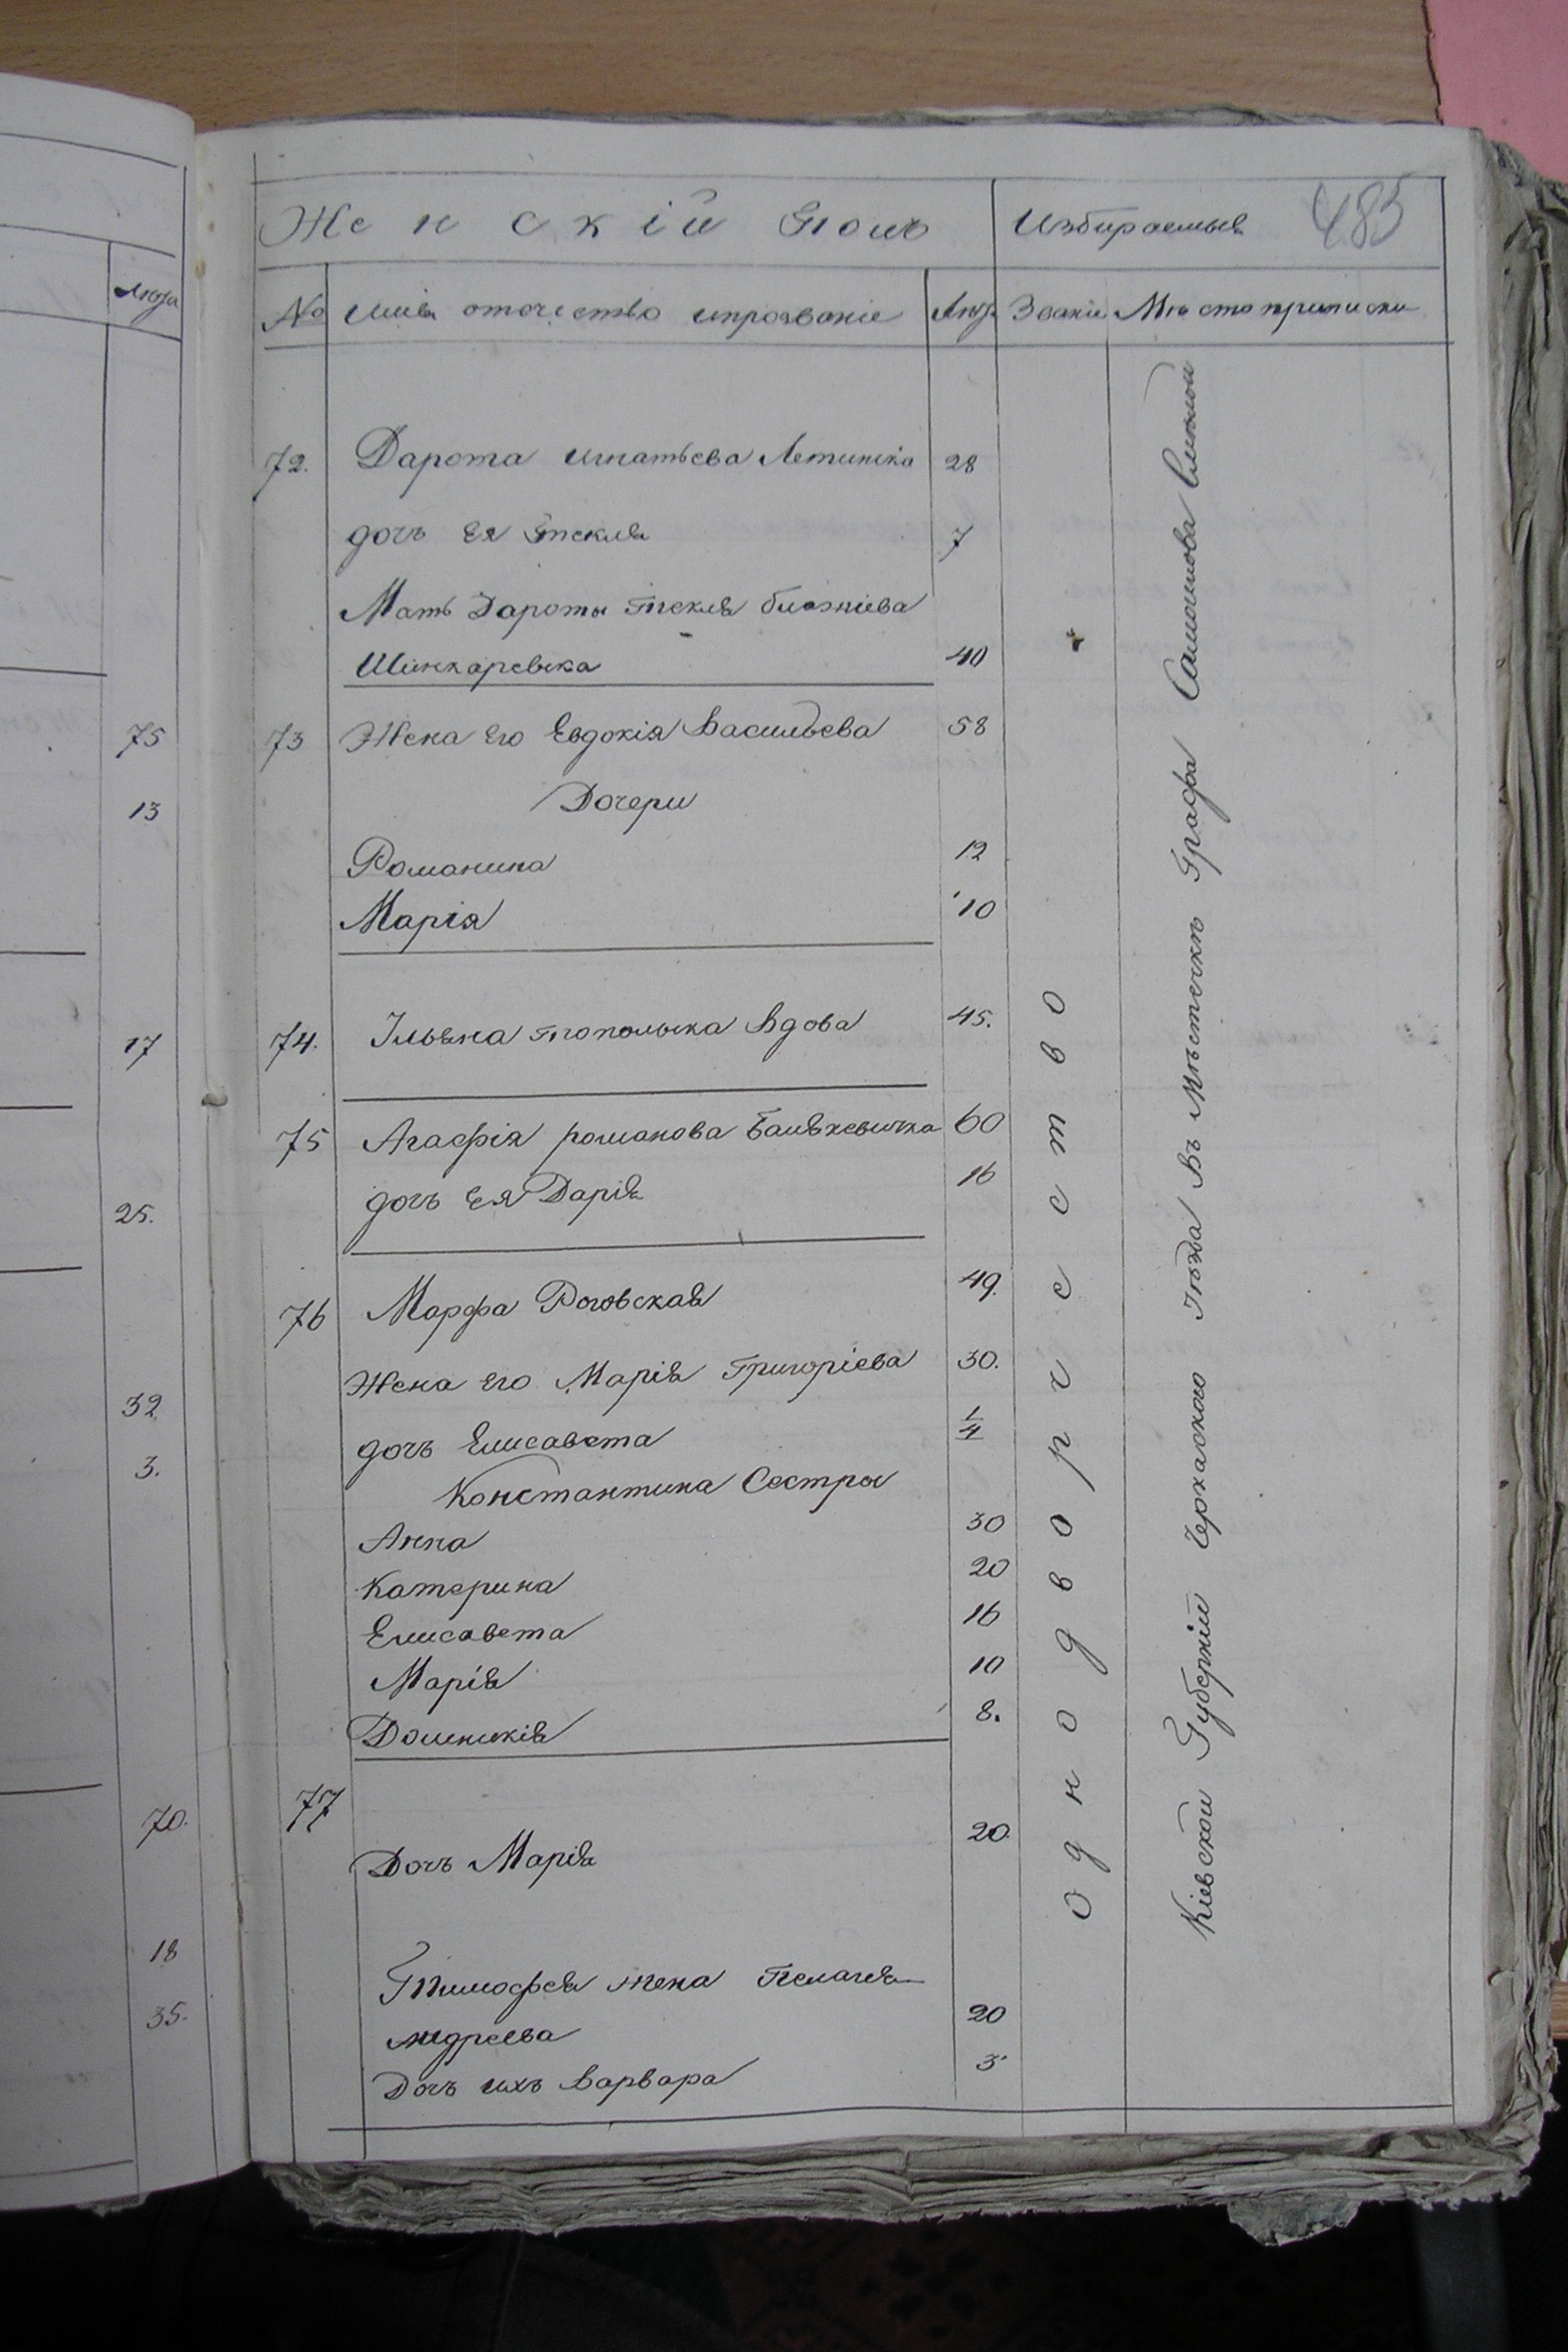 Люта
75
13
17
25.
32.
3.
70.
18
35.
Женскій Полъ Избираемыя 485
№ Имя отечество ипрозваніе Лют Званіе Мѣсто приписки
72. Дарота Игнатьева 28
дочъ Ея Текля 7
Мать Дароты Текля
Шинкаревска 40
73 Жена Его Евдокія Васильева 58
Дочери
Романина 12
Марія 10
74. Ульяна Топольска Вдова 45.
75 Агафія романова 60
дочъ Ея Дарія 16
76 Марфа Роговская 49.
Жена Его Марія Григоріева 30.
дочъ Елисавета 1/4
Константина Сестры
Анна 30
Катерина 20
Елисавета 16
Марія 10
Доминикія 8.
77
Дочъ Марія 20.
Тимофея жена Пелагея
Андреева 20
Дочъ ихъ Варвара 3
Однодворчество
Кіевской Губерніи Черкаского Уѣзда Въ Мѣстечкѣ Графа Самойлова Смѣлой